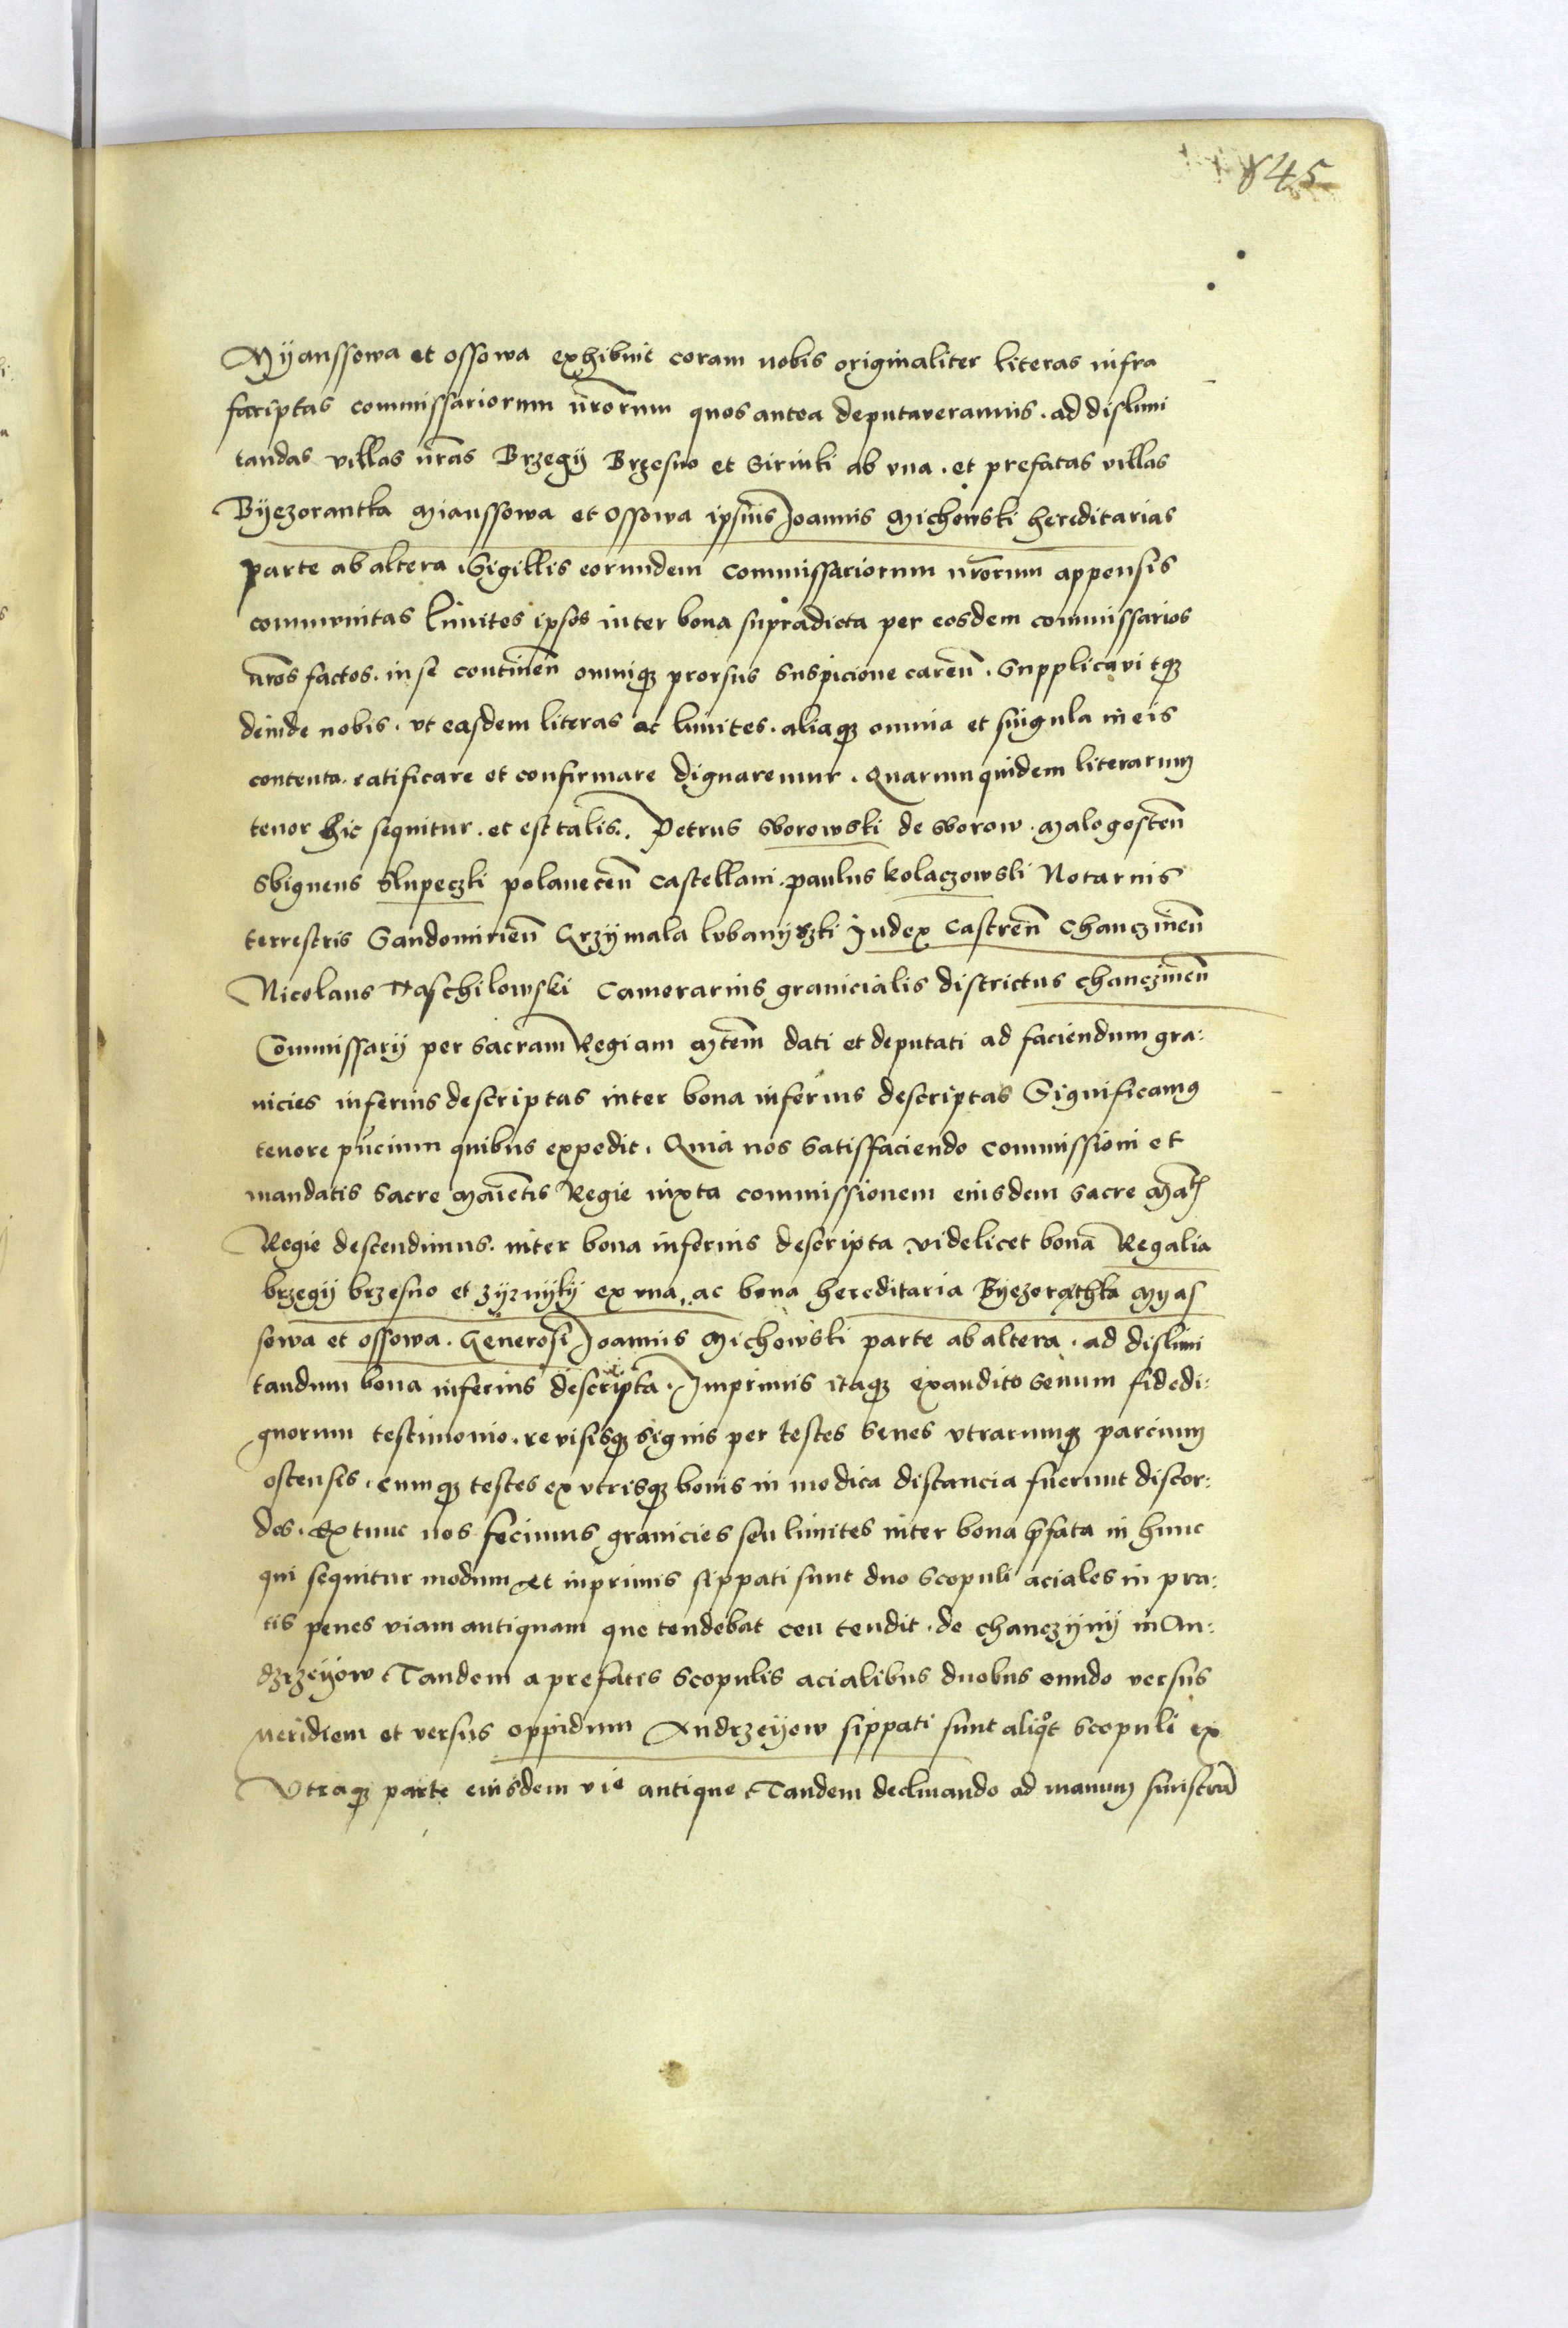 845
Myanssowa et Ossowa exhibuit coram nobis originaliter literas infra
scriptas commissariorum nr̄orum quos antea deputaveramus . ad dislimi
tandas villas nr̄as Brzegij Brzesno et Sirinki ab vna . et prefatas villas
Byezorantka Mianssowa et Ossowa ipsius Joannis Michowski hereditarias
parte ab altera . Sigillis eorundem commissariorum nr̄orum appensis
communitas limites ipsos inter bona supradicta per eosdem commissarios
nr̄os factos . in se continen̄ omniqꝫ prorsus suspicione caren̄ . Supplicavitqꝫ
deinde nobis . vt easdem literas ac limites . aliaqꝫ omnia et singula in eis
contenta . ratificare et confirmare dignaremur . Quarum quidem literarum
tenor hic sequitur . et est talis . Petrus Sborowski de Sborow . Malogosten̄
Sbigneus Slupeczki polanecen̄ castellani . paulus kolaczowski Notarius
terrestris Sandomirien̄ Grzymala lvbanyszki Judex castren̄ Chanczinen̄
Nicolaus Paschilowski Camerarius granicialis districtus chanczinen̄
Commissarij per sacram Regiam Mtem̄ dati et deputati ad faciendum gra:
nicies inferius descriptas inter bona inferius descriptas Significamꝰ
tenore pn̄cium quibus expedit . Quia nos satisfaciendo commissioni et
mandatis sacre Maien̄tis Regie iuxta commissionem eiusdem sacre Mat̄ꝭ
Regie descendimus . inter bona inferius descripta videlicet bona Regalia
brzegij brzesno et zyrnyky ex vna . ac bona hereditaria Byezorathka Myas
sowa et ossowa . Generosi Joannis Michowski parte ab altera . ad dislimi
tandum bona inferius descripta . Imprimis itaqꝫ exaudito senum fidedi:
gnorum testimonio . revisisqꝫ signis per testes senes vtrarumqꝫ parcium
ostensis . cumqꝫ testes ex vtrisqꝫ bonis in modica distancia fuerunt discor:
des . Extunc nos fecimus granicies seu limites inter bona p̄fata in hunc
qui sequitur modum Et inprimis sippati sunt duo scopuli aciales in pra:
tis penes viam antiquam que tendebat ceu tendit . de chanczyny in An:
dzrzeyow Tandem a prefatis scopulis acialibus duobus eundo versus
meridiem et versus oppidum Andrzeyow sippati sunt aliqͦt scopuli ex
Vtraqꝫ parte eiusdem vie antique Tandem declinando ad manum sinistrā